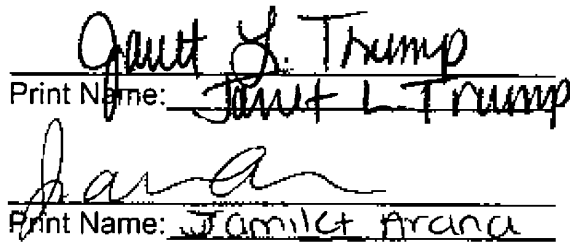 Janet L. Trump
Print Name: Janet L Trump
Print Name: Jamilet Arana